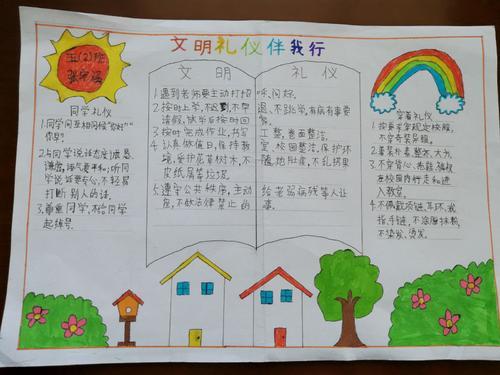 文明礼仪伴我行
五(2)班
同学礼仪
1.同学间互相问候"你好""
你早"
2.与同学说话态度诚恳、
谦虚,语气要平和;听同
学说话要专心,不轻易
打断别人的话。
3.尊重同学,不给同学
起绰号。
文明
1.遇到老师要主动打招
2.按时上学,不迟到,不早
请假,放学后按时回
3.按时完成作业,书写
4.认真做值日,保持教
境,爱护花草树木,不
皮纸屑等垃圾。
5.遵守公共秩序,主动
座,不做法律禁止的
礼仪
呼、问好。
退、不逃学,有病有事要
家。
工整,卷面整洁。
室、校园整洁,保护环
随地吐痰,不乱扔果
给老弱病残等人让
事。
穿着礼仪
1.按要求穿规定校服,
不穿奇装异服。
2.着装朴素、整齐、大方。
3.不穿背心、拖鞋、裤衩
在校园内行走和进
入教室。
4.不佩戴项链、耳环、戒
指、手链,不涂脂抹粉,
不染发、烫发。